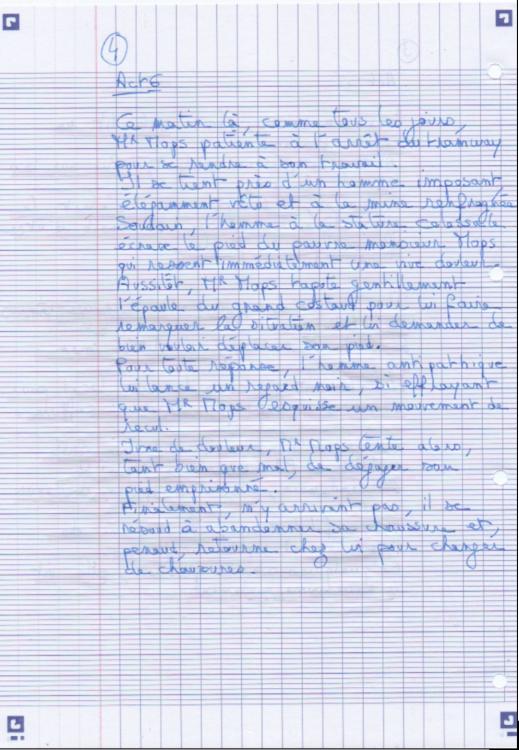 4
Act 6
Ce matin là, comme tous les jours,
Mr Mops patiente à l'arrêt du tramway
pour se rendre à son travail.
Il se tient près d'un homme imposant,
élégamment vêtu et à la mine renfrognée
Soudain, l'homme à la stature colossale
écrase le pied du pauvre monsieur Mops
qui ressent immédiatement une vive douleur.
Aussitôt, Mr Mops tapote gentillement
l'épaule du grand costaud pour lui faire
remarquer la situation et lui demander de
bien vouloir déplacer son pied.
Pour toute réponse, l'homme antipathique
lui lance un regard noir, si effrayant
que Mr Mops esquisse un mouvement de
recul.
Ivre de douleur, Mr Mops tente alors,
tant bien que mal, de dégager son
pied emprisonné.
Finalement, n'y arrivant pas, il se
résoud à abandonner sa chaussure et,
penaud, retourne chez lui pour changer
de chaussures.